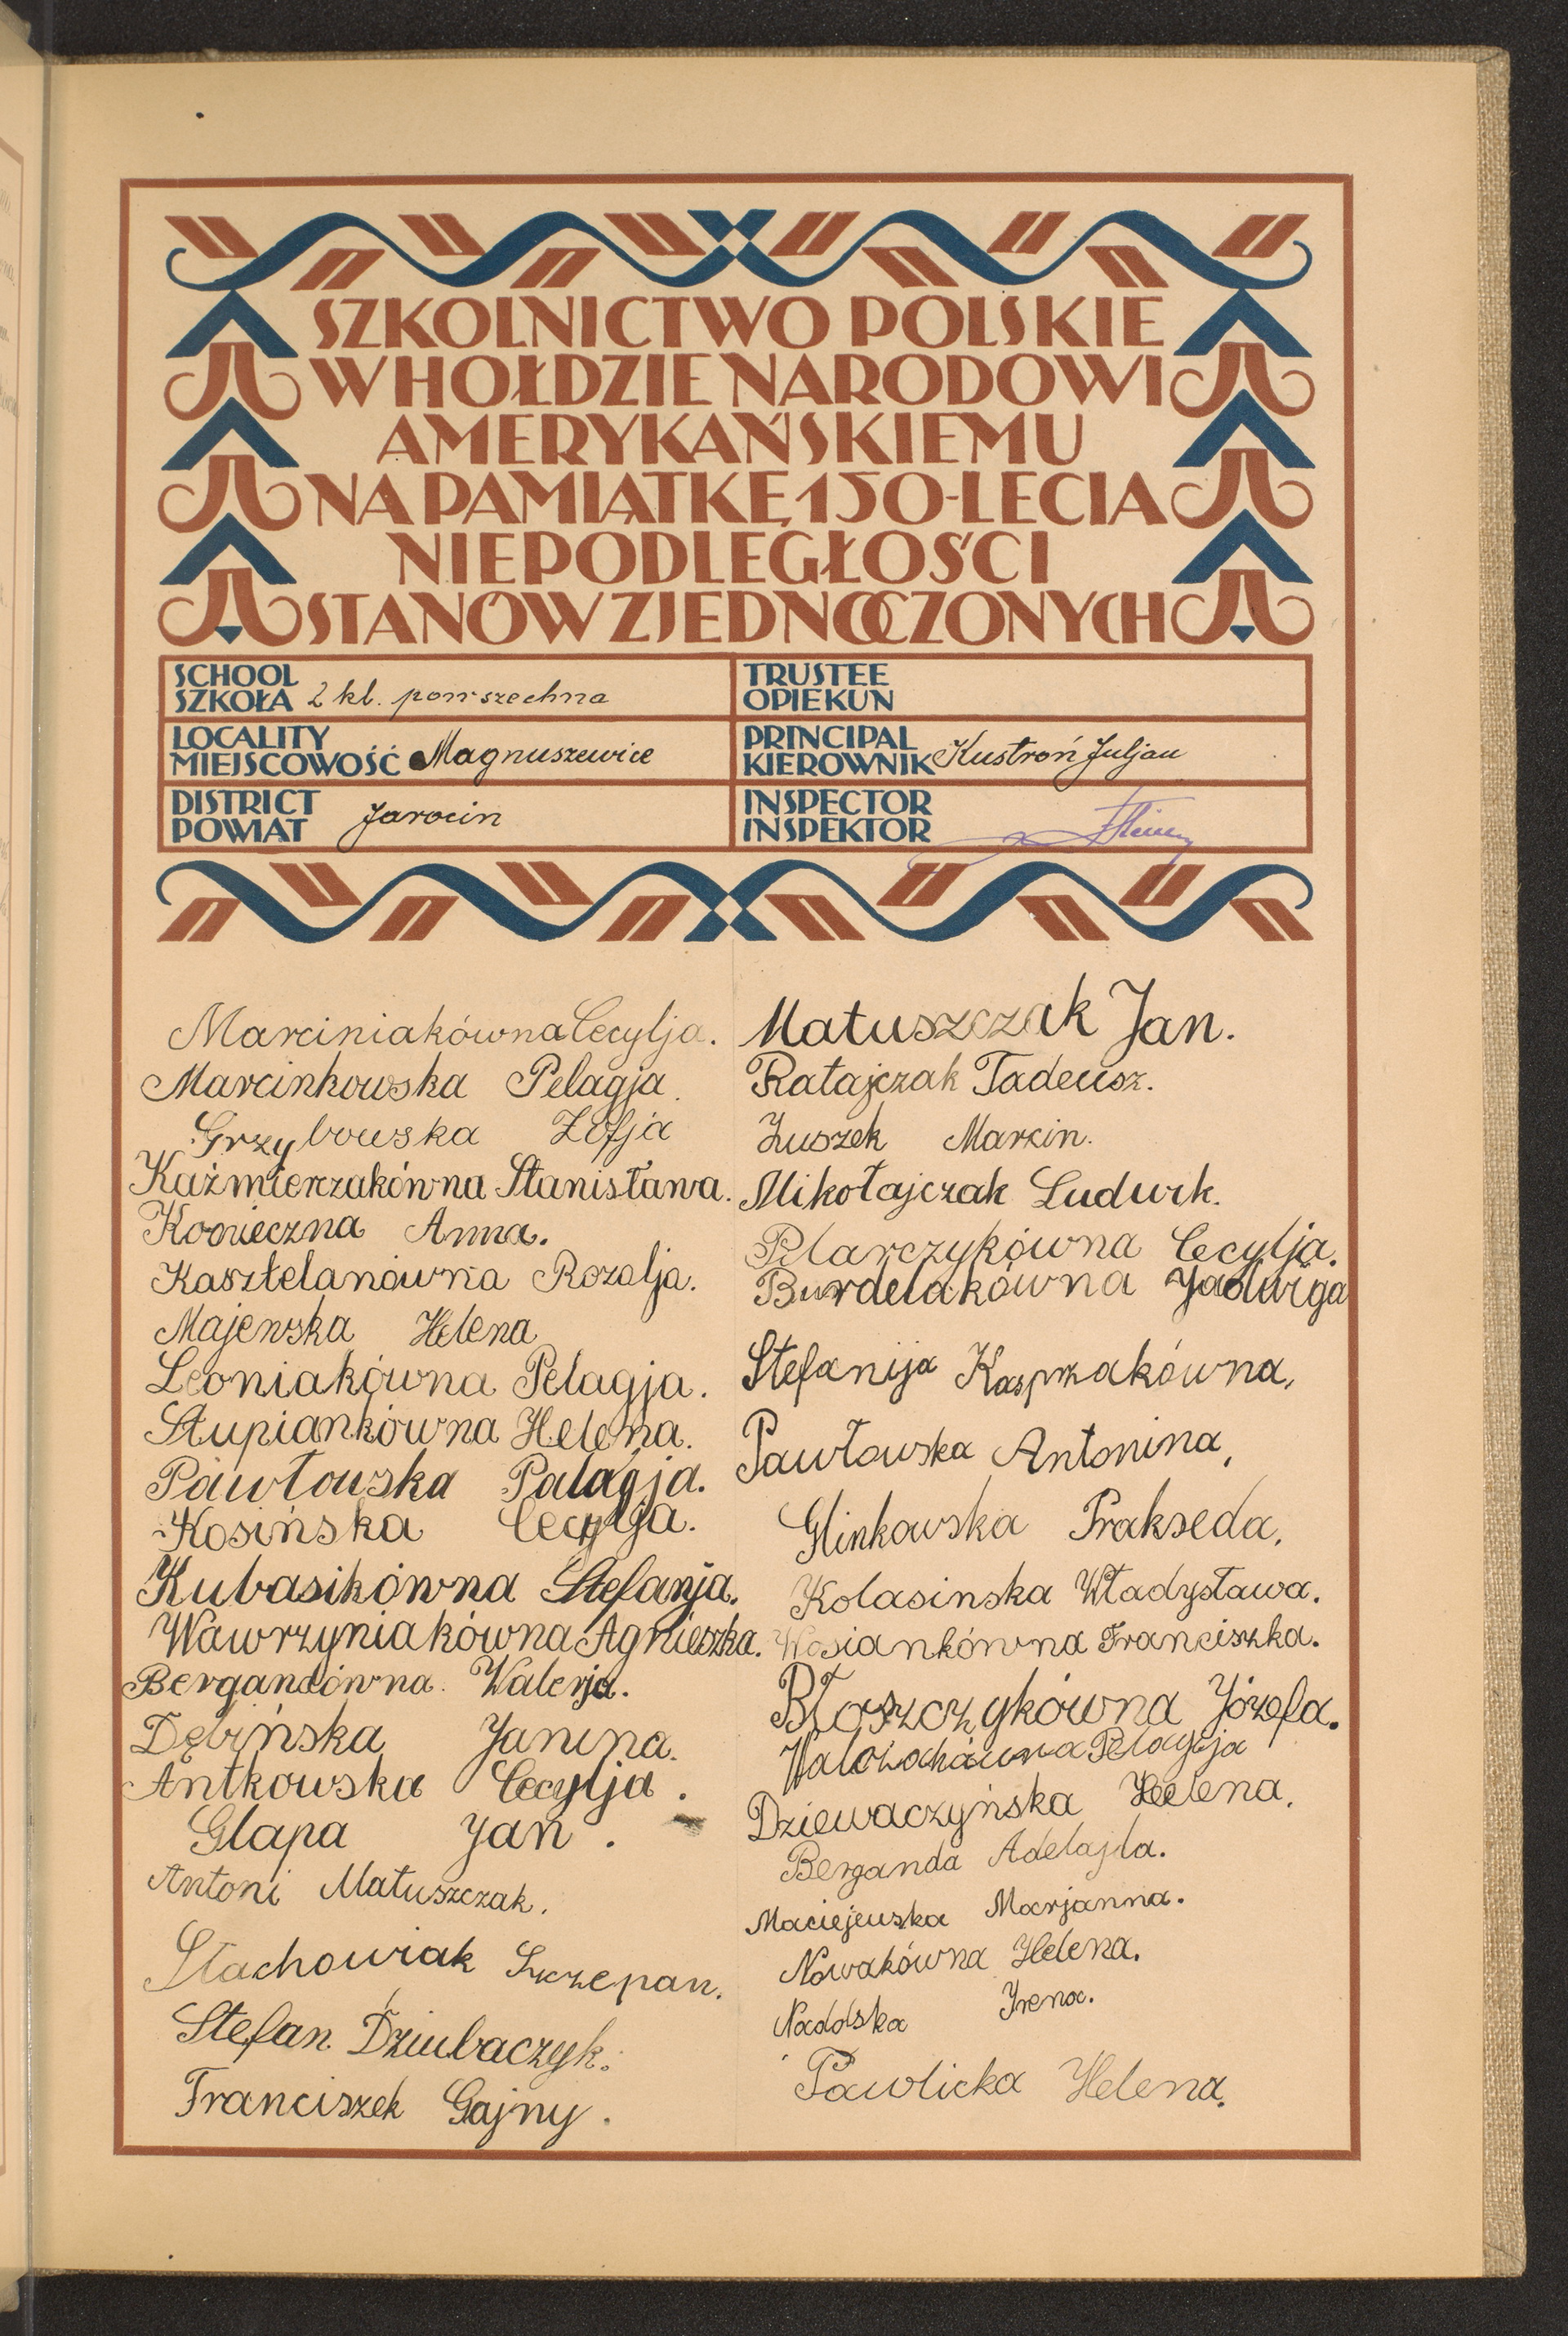 SZKOLNICTWO POLSKIE
W HOŁDZIE NARODOWI
AMERYKAŃSKIEMU
NA PAMIĄTKĘ 150-LECIA
NIEPODLEGŁOŚCI
STANÓW ZJEDNOCZONYCH
SCHOOL
SZKOŁA 2 kl. powszechna
TRUSTEE
OPIEKUN
LOCALITY
MIEJSCOWOŚĆ Magnuszewice
PRINCIPAL
KIEROWNIK Kustroń Juljan
DISTRICT
POWIAT Jarocin
INSPECTOR
INSPEKTOR
Marciniakówna Cecylja.
Marcinkowska Pelagja.
Grzybowska Zofja
Kaźmierczakówna Stanisława.
Konieczna Anna.
Kasztelanówna Rozalja.
Majewska Helena
Leoniakówna Pelagja.
Słupiankówna Helena.
Pawłowska Palagja.
Kosińska Cecylja.
Kubasikówna Stefanja.
Wawrzyniakówna Agnieszka.
Bergandówna. Walerja.
Dębińska Janina.
Antkowska Cecylja.
Glapa Jan.
Antoni Matuszczak.
Stachowiak Szczepan.
Stefan Dziubaczyk.
Franciszek Gajny.
Matuszczak Jan.
Ratajczak Tadeusz.
Łuszek Marcin.
Mikołajczak Ludwik.
Pilarczykówna Cecylja.
Burdelakówna Jadwiga
Stefanija Kasprzakówna,
Pawłowska Antonina,
Glinkowska Prakseda,
Kolasinska Władysława.
Wosiankówna Franciszka.
Błoszczykówna Józefa.
Pelagja
Dziewaczyńska Helena.
Berganda Adelajda.
Maciejewska Marjanna.
Nowakówna Helena.
Nadolska Irena.
Pawlicka Helena.